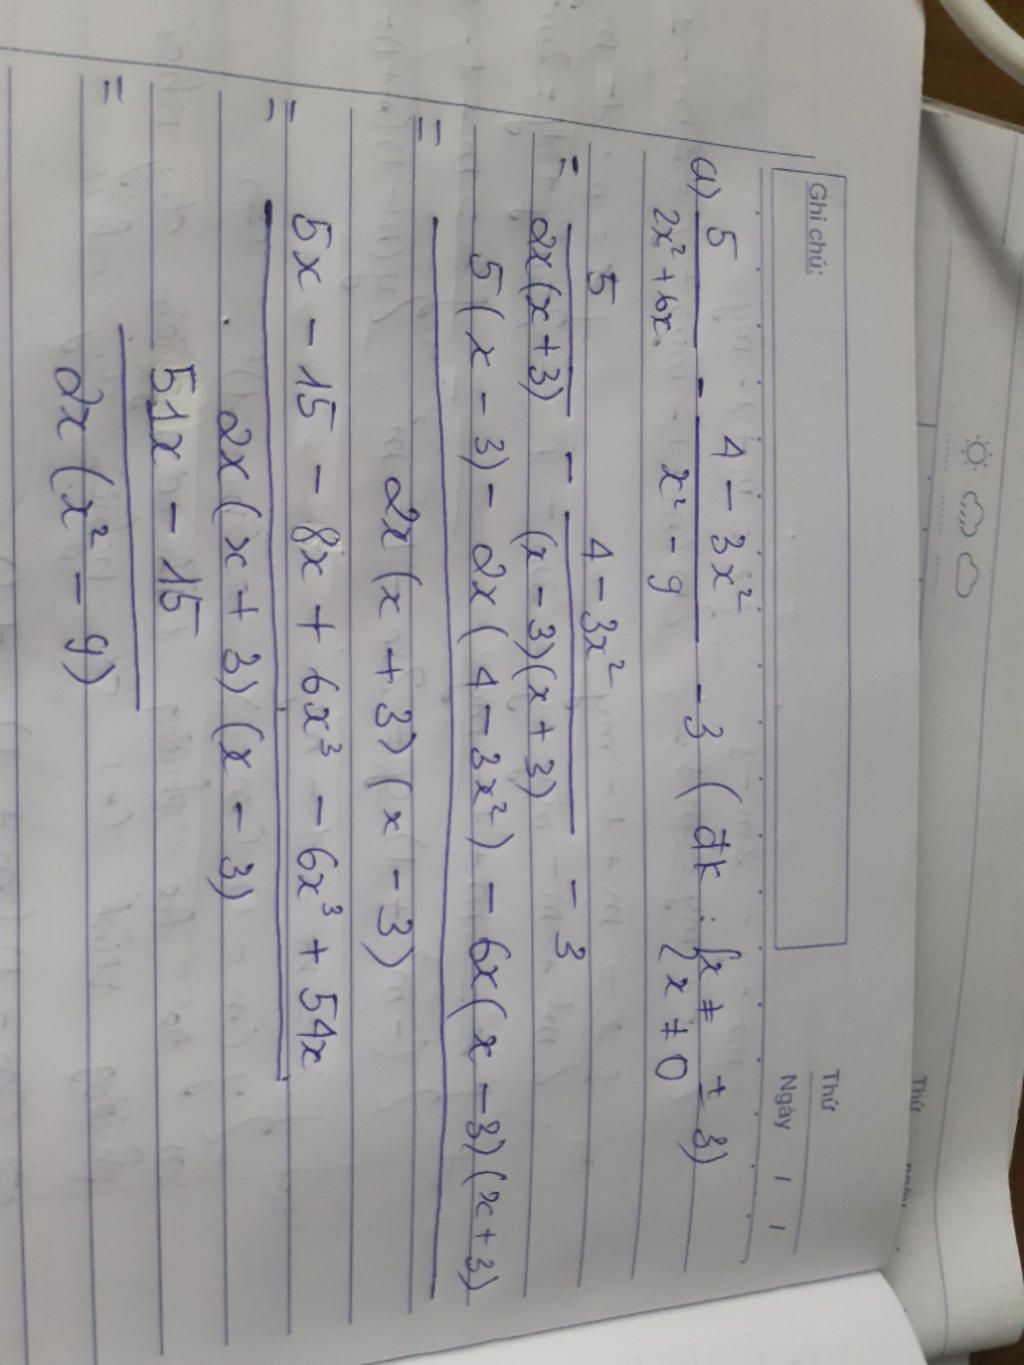 Thứ
Ghi chú:
Thứ
Ngày / /
a) 5/(2x² + 6x) - (4 - 3x²)/(x² - 9) - 3 (đk: {x ≠ ±3) {x ≠ 0
= 5/(2x(x+3)) - (4 - 3x²)/((x-3)(x+3)) - 3
= 5(x - 3) - 2x(4 - 3x²) - 6x(x - 3)(x+3)
2x(x + 3)(x - 3)
= 5x - 15 - 8x + 6x³ - 6x³ + 54x
2x(x + 3)(x - 3)
= 51x - 15
2x(x² - 9)